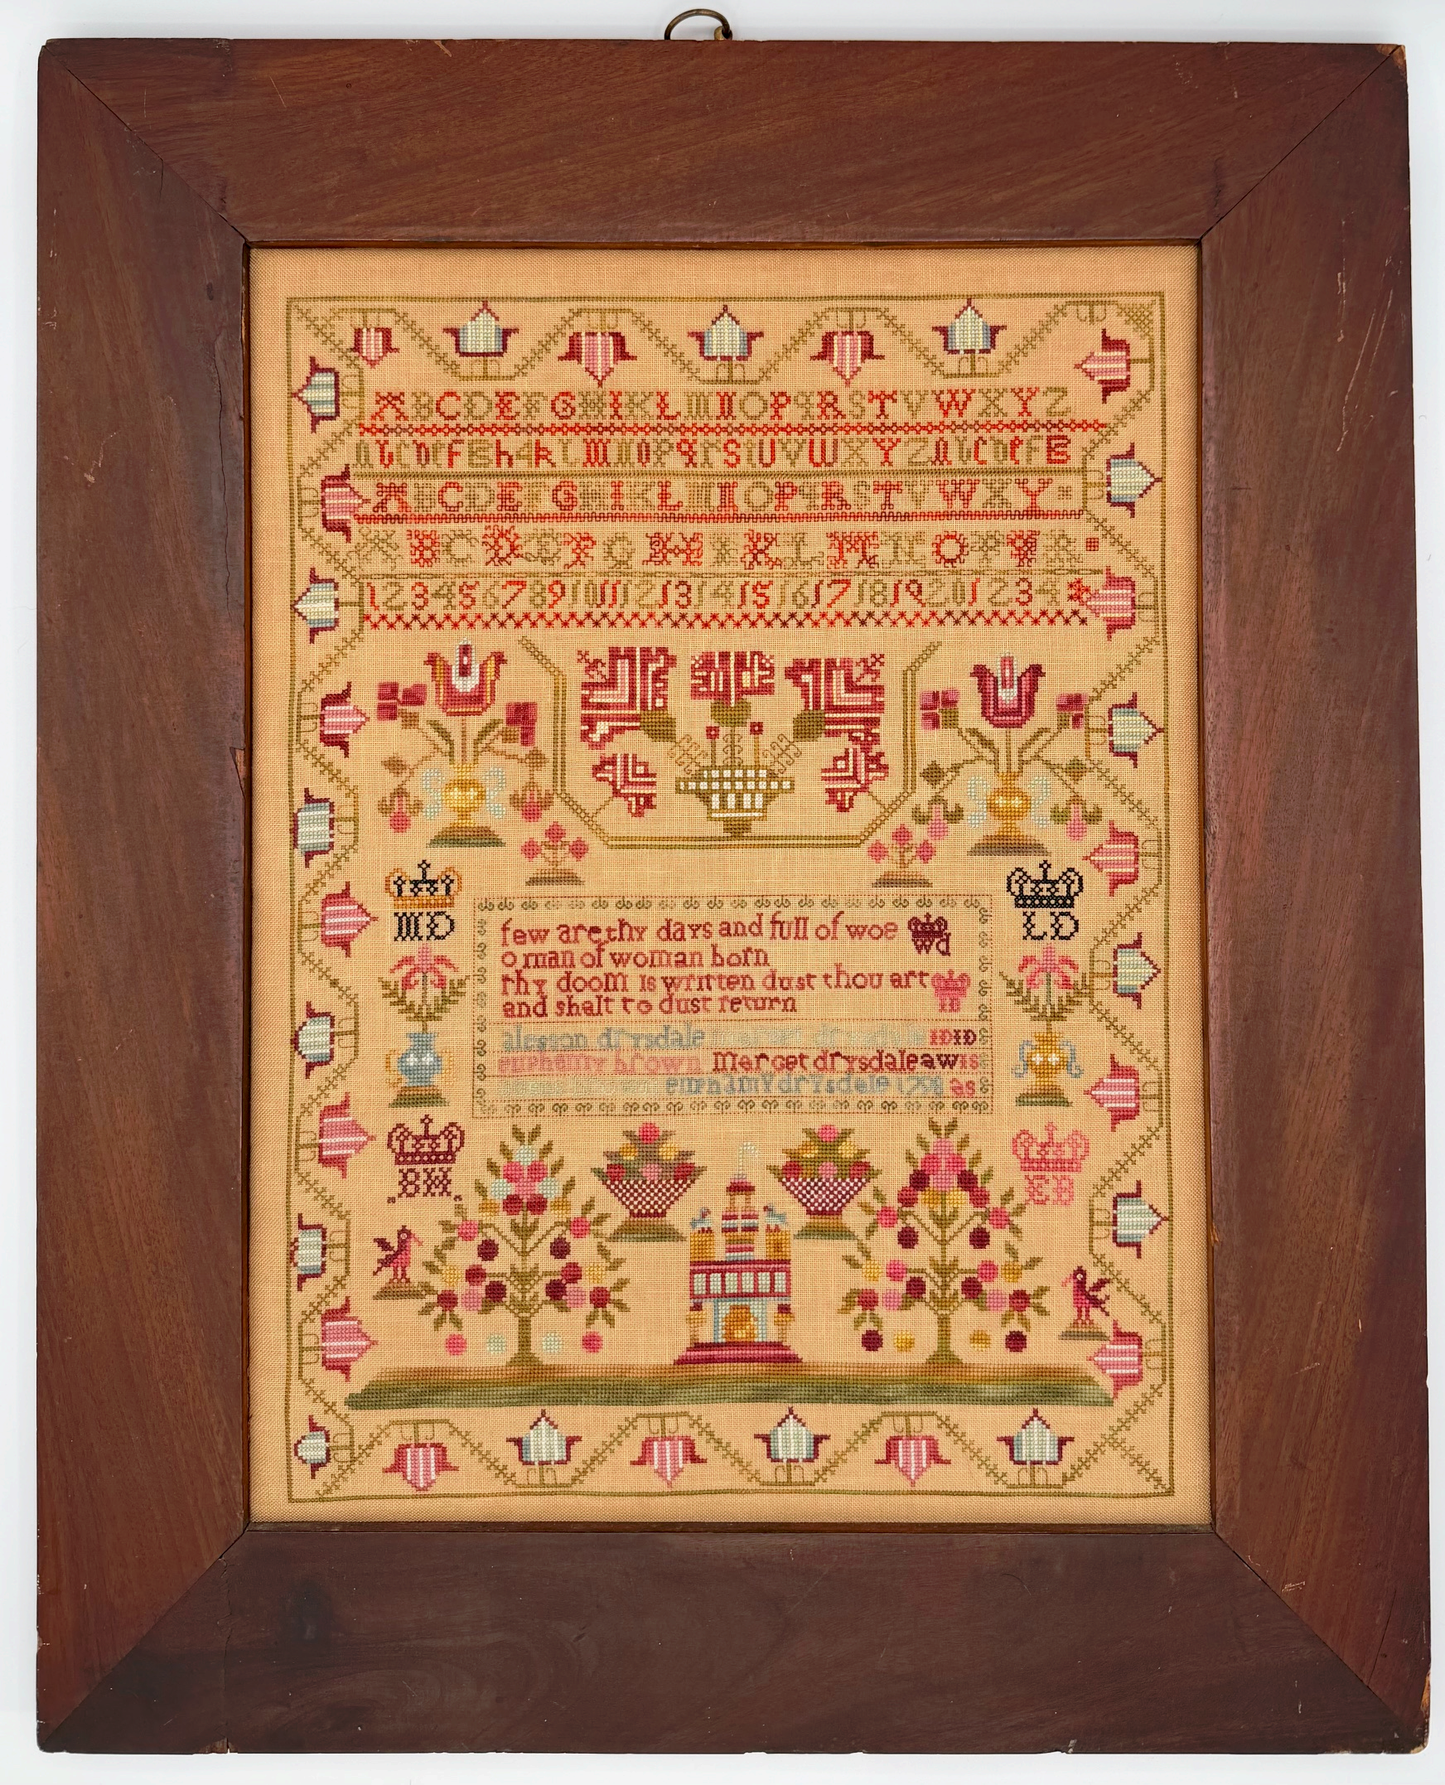 A B C D E F G H I K L M N O P Q R S T V W X Y Z
a b c d e f g h i k l m n o p q r s t u v w x y z a b c d e f g
A B C D E F G H I K L M N O P Q R S T V W X Y
A B C D E F G H I K L M N O P Q R
1 2 3 4 5 6 7 8 9 10 11 12 13 14 15 16 17 18 19 20 1 2 3 4
MD
LD
few are thy days and full of woe WD
o man of woman born
thy doom is written dust thou art IB
and shalt to dust return
alesson drysdale drysdale ID ID
euphamy brown Marget drysdale aw is
brown euphamy drysdale as
BH
EB